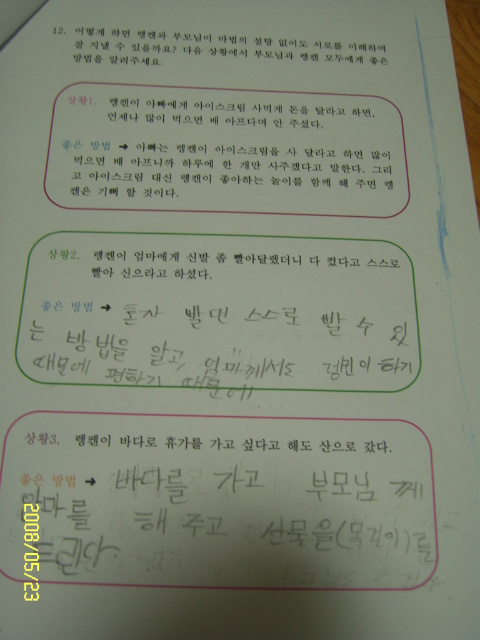 12. 어떻게 하면 랭켄과 부모님이 마법의 설탕 없이도 서로를 이해하며
잘 지낼 수 있을까요? 다음 상황에서 부모님과 랭켄 모두에게 좋은
방법을 알려주세요.
상황1. 랭켄이 아빠에게 아이스크림 사먹게 돈을 달라고 하면,
언제나 많이 먹으면 배 아프다며 안 주셨다.
좋은 방법 → 아빠는 랭켄이 아이스크림을 사 달라고 하면 많이
먹으면 배 아프니까 하루에 한 개만 사주겠다고 말한다. 그리
고 아이스크림 대신 랭켄이 좋아하는 놀이를 함께 해 주면 랭
켄은 기뻐 할 것이다.
상황2. 랭켄이 엄마에게 신발 좀 빨아달랬더니 다 컸다고 스스로
빨아 신으라고 하셨다.
좋은 방법 → 혼자 빨면 스스로 빨 수 있
는 방법을 알고, 엄마께서도 이 하기
때문에 편하기 때문에
상황3. 랭켄이 바다로 휴가를 가고 싶다고 해도 산으로 갔다.
좋은 방법 → 바다를 가고 부모님 께
안마를 해 주고 선물을(목걸이)를
드린다.
2008/05/23